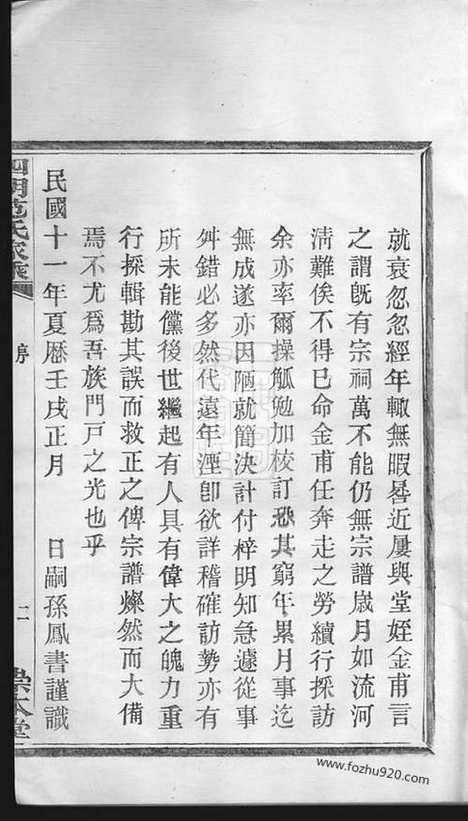 就衰忽忽經年輙無暇晷近屢與堂姪金甫言
之謂旣有宗祠萬不能仍無宗譜歲月如流河
淸難俟不得已命金甫任奔走之勞續行採訪
余亦率爾操觚勉加校訂恐其窮年累月事迄
無成遂亦因陋就簡決計付梓明知急遽從事
舛錯必多然代遠年湮卽欲詳稽確訪勢亦有
所未能儻後世繼起有人具有偉大之魄力重
行採輯勘其誤而救正之俾宗譜燦然而大備
焉不尤爲吾族門戶之光也乎
民國十一年夏曆壬戌正月 日嗣孫鳳書謹識
四明范氏家乘 序 二 崇本堂
www.fozhu920.com